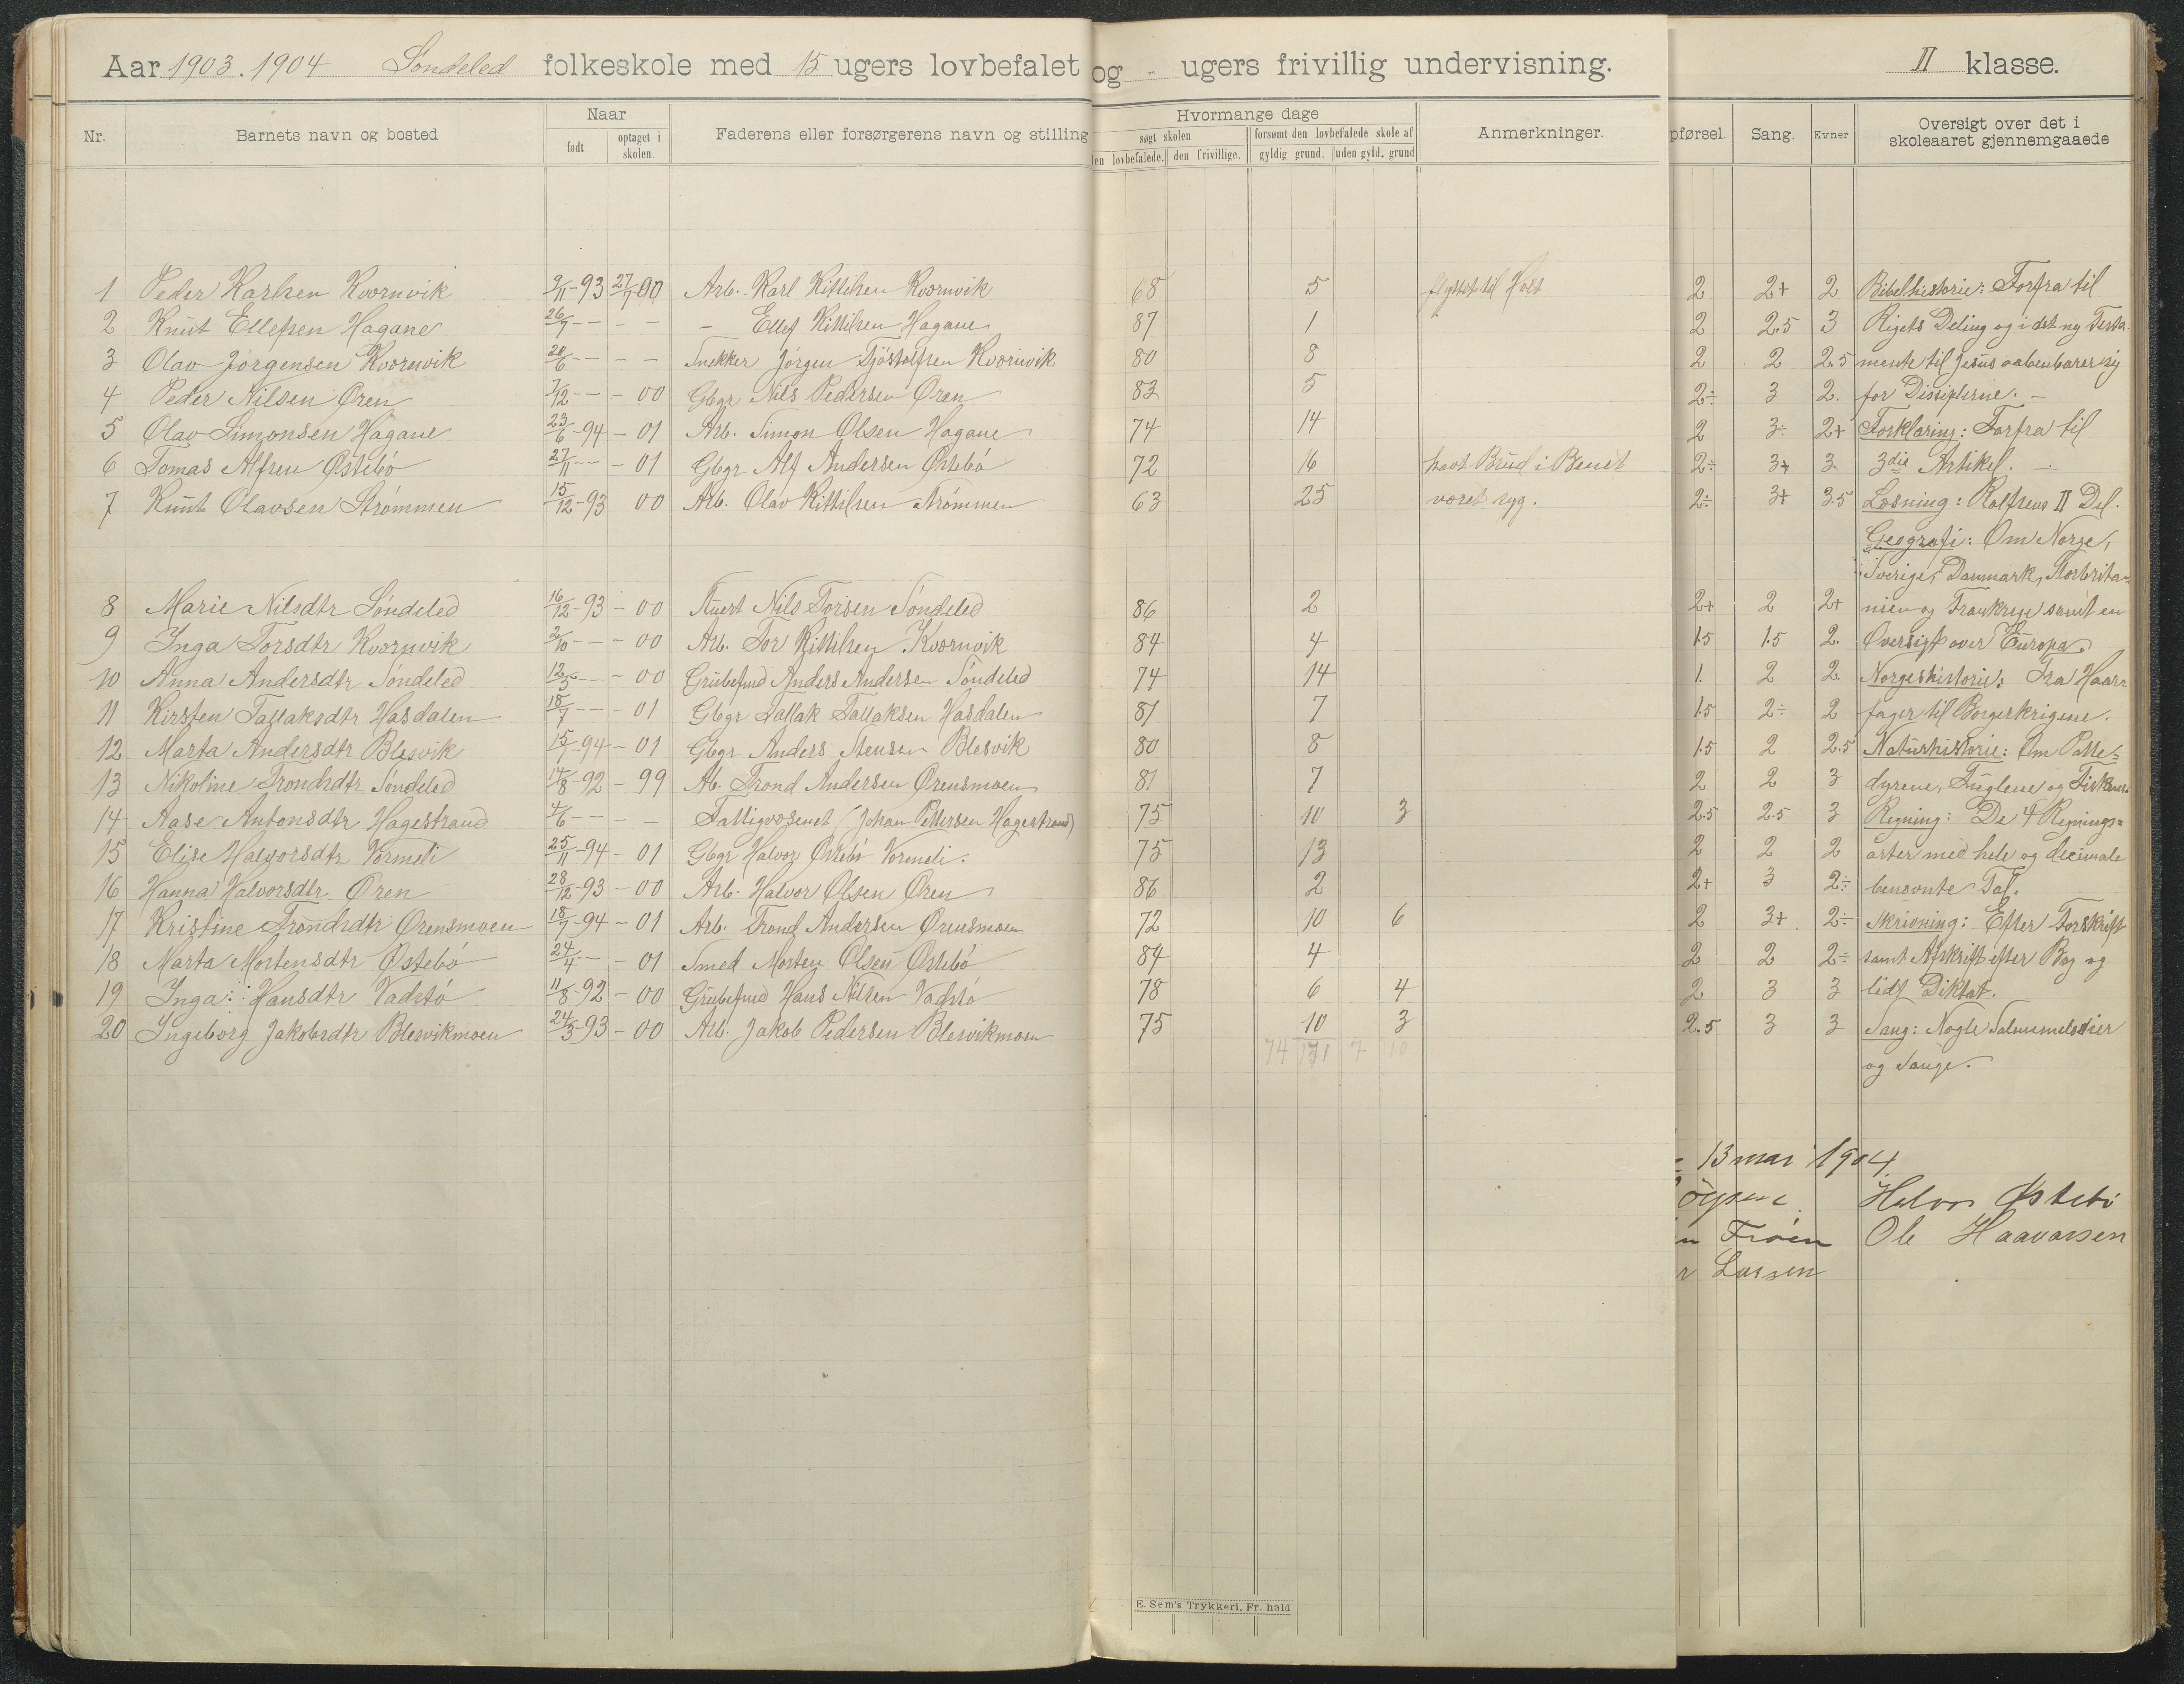 Aar 1903.1904 Söndeled folkeskole med 15 ugers lovbefalet og - ugers frivillig undervisning. II klasse.
Nr. Barnets navn og bosted Naar født optaget i skolen. Faderens eller forsørgerens navn og stilling Hvormange dage søgt skolen en lovbefalede. den frivillige. forsømt den lovbefalede skole af gyldig grund. uden gyld. grund Anmerkninger. pførsel. Sang. Evner Oversigt over det i skoleaaret gjennemgaaede
1 Peder Karlsen Kvornvik 9/11-93 27/7-00 Arb. Karl Kittilsen Kvornvik 68 5 flyttet til Holt 2 2+ 2 Bibelhistorie: Forfra til
2 Knut Ellefsen Hagane 26/7 - - - - - Ellef Kittilsen Hagane 87 1 2 2.5 3 Rigets Deling og i det ny Testa-
3 Olav Jörgensen Kvornvik 20/6 - - - - Snekker Jörgen Tjöstolfsen Kvornvik 80 8 2 2 2.5 mente til Jesus aabenbarer sig
4 Peder Nilsen Øren 7/12 - - - 00 Gbgr Nils Pedersen Øren 83 5 2÷ 3 2. for Disiplerne. -
5 Olav Simonsen Hagane 23/6-94 - 01 Arb. Simon Olsen Hagane 74 14 2 3÷ 2+ Forklaring: Forfra til
6 Tomas Alfsen Østebö 27/11 - - - 01 Gbgr Alf Andersen Östebö 72 16 havt Brud i Benet 2÷ 3+ 3 3die Artikel. -
7 Knut Olavsen Strømmen 15/12-93 00 Arb. Olav Kittilsen Strömmen 63 25 været syg. 2÷ 3+ 3.5 Læsning: Rolfsens II Del.
Geografi: Om Norge,
Sverige, Danmark, Storbrita-
8 Marie Nilsdtr Söndeled 16/12-93 - 00 Stuert Nils Torsen Söndeled 86 2 2+ 2 2+ nien og Frankrige samt en
9 Inga Torsdtr Kvornvik 2/10 - - - 00 Arb. Tor Kittilsen Kvornvik 84 4 1.5 1.5 2. Oversigt over Europa.
10 Anna Andersdtr Söndeled 12/5 - - 00 Grubefmd Anders Andersen Söndeled 74 14 1. 2 2. Norgeshistorie: Fra Haar-
11 Kirsten Tallaksdtr Hasdalen 18/7 - - - 01 Gbgr Tallak Tallaksen Hasdalen 81 7 1.5 2÷ 2 fager til Borgerkrigene.
12 Marta Andersdtr Blesvik 15/7-94 - 01 Gbgr Anders Stensen Blesvik 80 8 1.5 2 2.5 Naturhistorie: Om Patte-
13 Nikoline Trondsdtr Söndeled 14/8-92 - 99 Ab. Trond Andersen Ørensmoen 81 7 2 2 3 dyrene, Fuglene og Fiskene
14 Aase Antonsdtr Hagestrand 4/6 - - - Fattigvæsenet (Johan Pettersen Hagestrand) 75 10 3 2.5 2.5 3 Regning: De 4 Regnings-
15 Elise Halvorsdtr Vormeli 25/11-94 - 01 Gbgr Halvor Östebö Vormeli. 75 13 2 2 2 arter med hele og decimale
16 Hanna Halvorsdtr Øren 28/12-93 - 00 Arb. Halvor Olsen Øren 86 2 2+ 3 2÷ benævnte Tal.
17 Kristine Trondsdtr Ørensmoen 18/7-94 - 01 Arb. Trond Andersen Ørensmoen 72 10 6 2 3+ 2÷ Skrivning: Efter Forskrift
18 Marta Mortensdtr Østebö 24/4 - - 01 Smed Morten Olsen Østebö 84 4 2 2 2÷ samt Afskrift efter Bog og
19 Inga Hansdtr Vadstö 11/8-92 - 00 Grubefmd Hans Nilsen Vadstö 78 6 4 2 3 3 lidt Diktat.
20 Ingeborg Jakobsdtr Blesvikmoen 24/3-93 - 00 Arb. Jakob Pedersen Blesvikmoen 75 10 3 2.5 3 3 Sang: Nogle Salmemelodier
74 171 7 10 og Sange.
13 mai 1904.
Halvor Østebö
Fröen Ole Haavorsen
Larsen
E. Sem's Trykkeri, Fr. hald